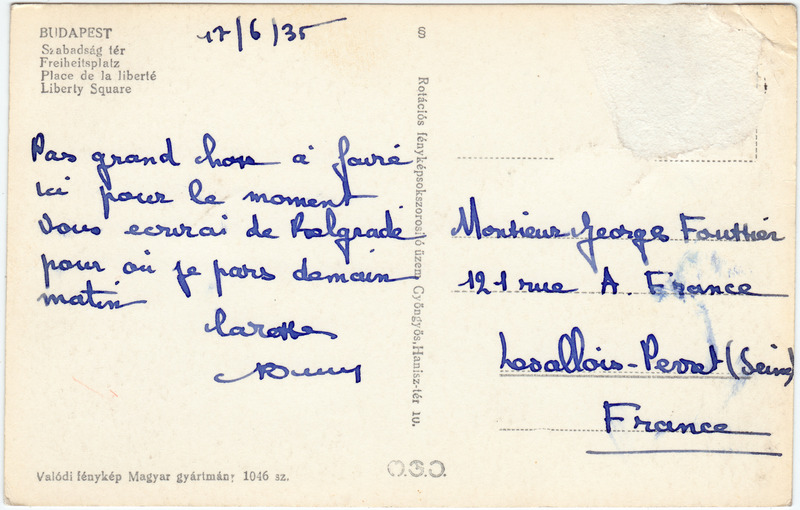 BUDAPEST
Szabadság tér
Freiheitsplatz
Place de la liberté
Liberty Square
17/6/35
Pas grand chose à faire
ici pour le moment
Vous ecrirai de Belgrade
pour où je pars demain
matin
Caresses
Valódi fénykép Magyar gyártmány 1046 sz.
§ Rotációs fényképsokszorosító üzem Gyöngyös, Hanisz-tér 10.
Monsieur Georges Fouttier
121 rue A. France
Levallois-Perret (Seine)
France